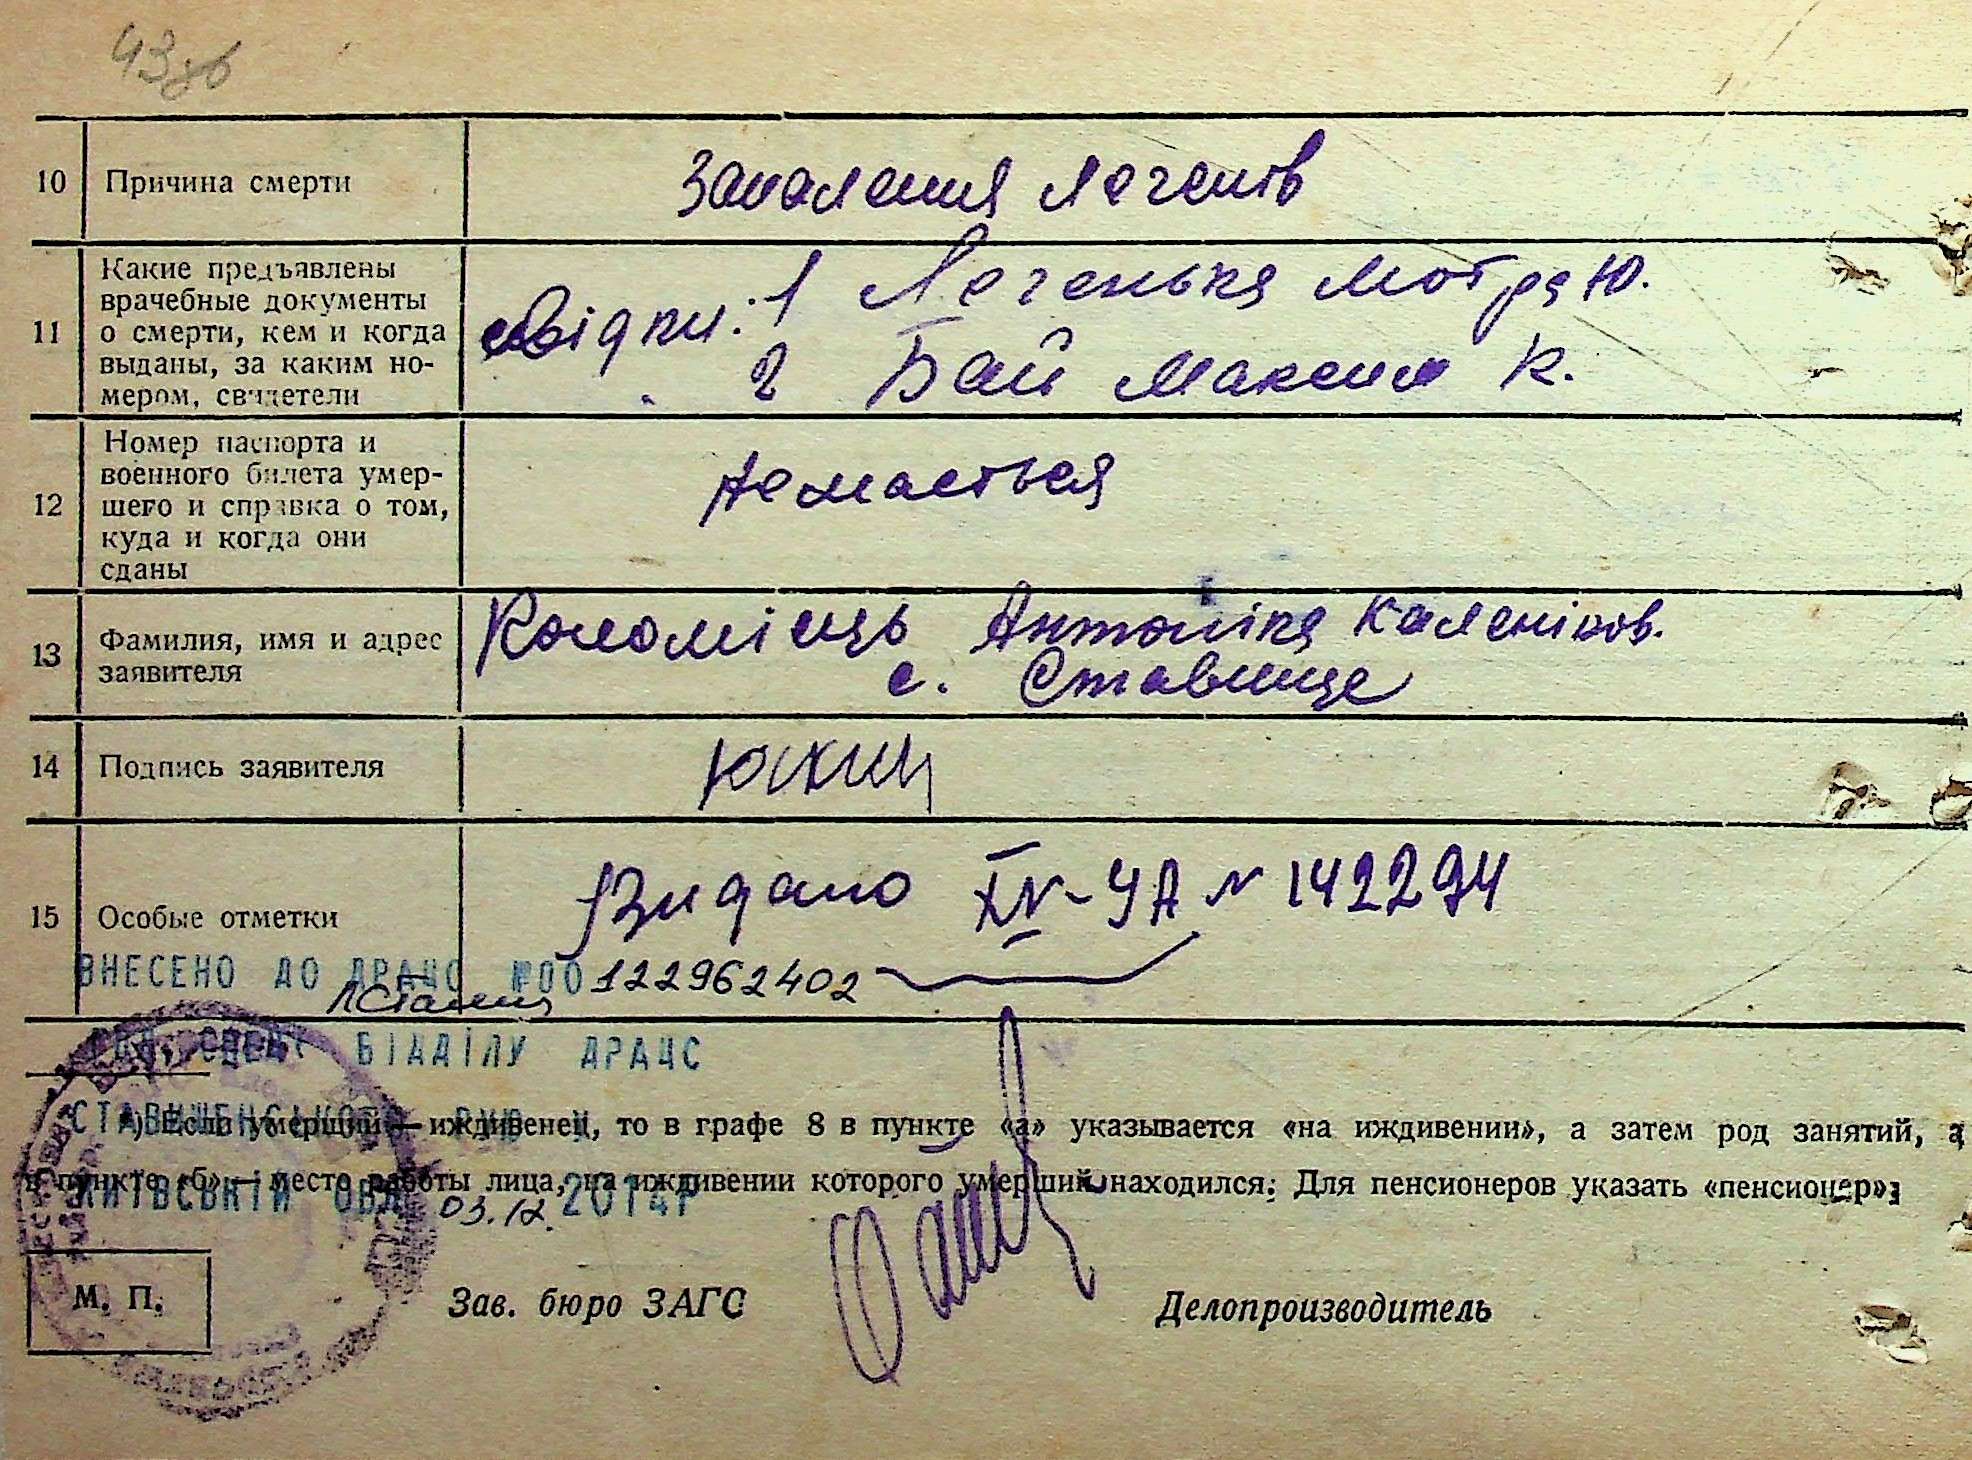 43зв
10 Причина смерти
Запалення легенів
11 Какие предъявлены
врачебные документы
о смерти, кем и когда
выданы, за каким но-
мером, свидетели
свідки: 1 Легенька Мотря Ю.
2 Бай Максим К.
12 Номер паспорта и
военного билета умер-
шего и справка о том,
куда и когда они
сданы
немається
13 Фамилия, имя и адрес
заявителя
Коломієць Антоніна Каленіков.
с. Ставище
14 Подпись заявителя
15 Особые отметки
Видано IV-УА № 142294
ВНЕСЕНО ДО ДРАЦС №00122962402
ВІДДІЛУ ДРАЦС
СТАВИЩЕНСЬКОГО РУЮ У
*) Если умерший — иждивенец, то в графе 8 в пункте «а» указывается «на иждивении», а затем род занятий, а
в пункте «б» — место работы лица, на иждивении которого умерший находился. Для пенсионеров указать «пенсионер».
КИЇВСЬКІЙ ОБЛ 03.12.2014Р
М. П.
Зав. бюро ЗАГС
Делопроизводитель